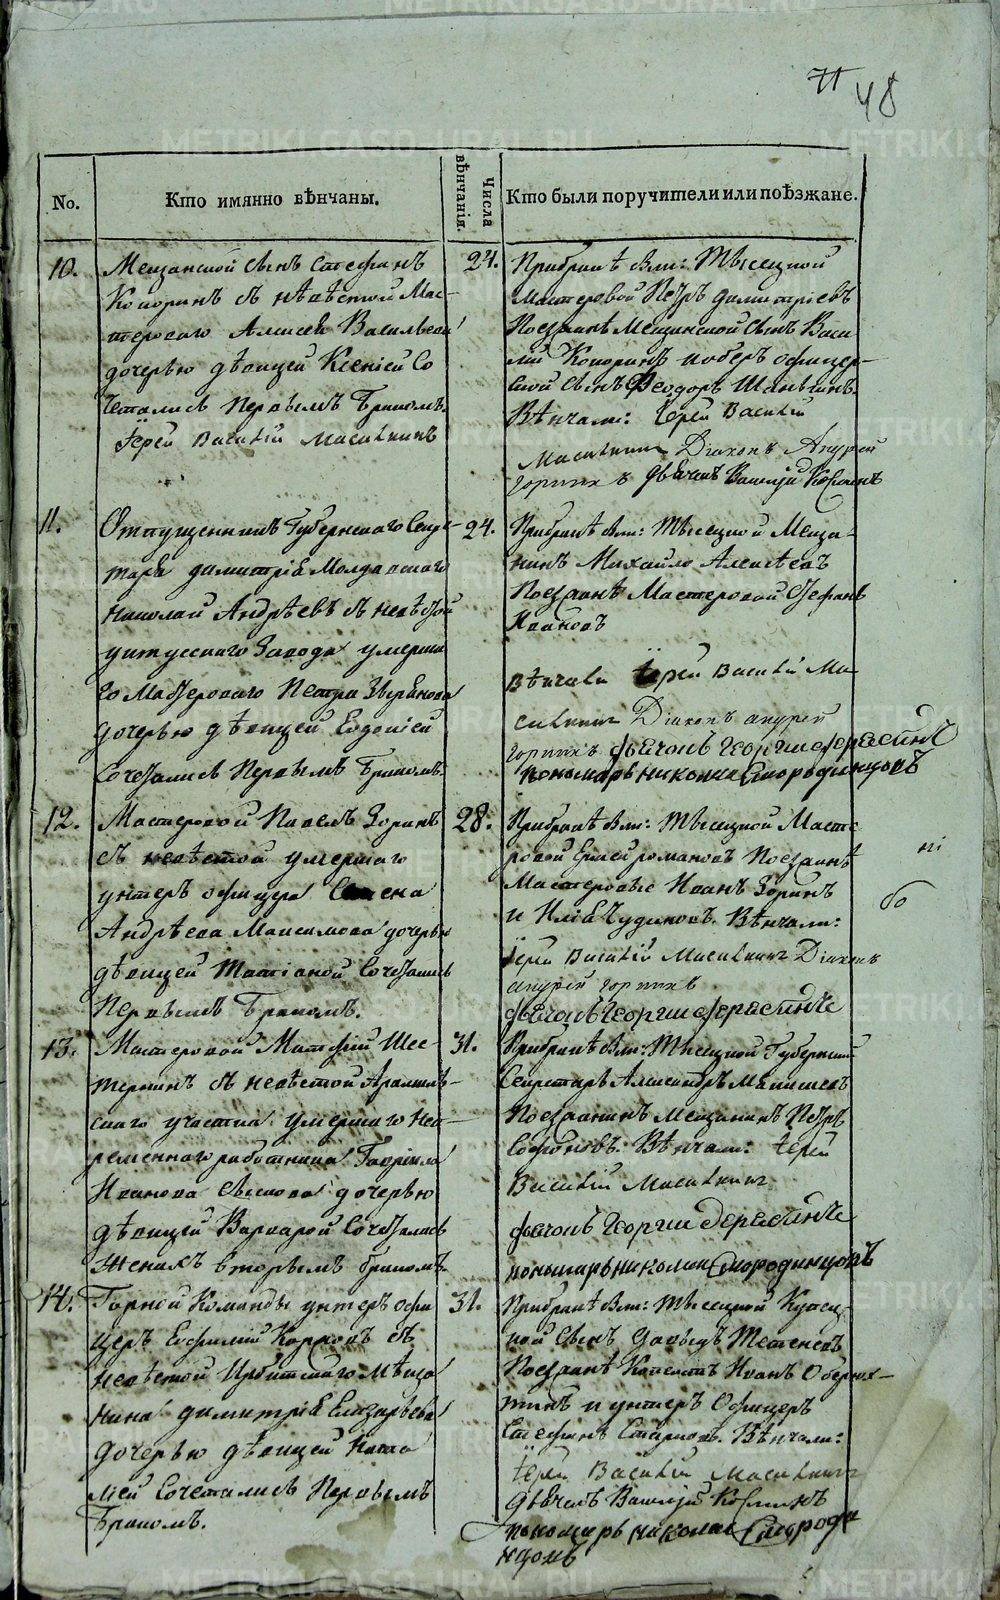 71 48
No.
Кто имянно вѣнчаны.
Числа вѣнчанія.
Кто были поручители или поѣзжане.
10.
Мещанской сынъ Стефанъ
Копоринъ съ невѣстой Мас-
тероваго Алексея Васильева
дочерью дѣвицей Ксеніей Со
четались первымъ бракомъ.
Іерей Василій Масилкинъ
24.
При бракѣ были: Тысяцкой
мастеровой Петръ Димитріевъ
Поезжанѣ Мещанской сынъ Васи
лій Копоринъ оберъ офицер-
ской сынъ Феодоръ
Вѣнчали: Іерей Василій
Масилкинъ Діаконъ Андрей
дьячекъ
11.
Отпущенникъ Губернскаго Секре-
таря Димитрія Молдавскаго
Николай Андрѣевъ съ невѣстой
уктусскаго Завода умерша
го Мастероваго Петра Звѣрикова
дочерью дѣвицей Евдокіей
сочетались первымъ бракомъ.
24.
При бракѣ были: Тысяцкой Меща-
нинъ Михайло Алексѣевъ
Поезжанѣ Мастеровой Стефанъ
Ивановъ
вѣнчали Іерей Василій Ма
силкинъ Діаконъ андрей
дьячокъ Георгии
пономарь николаи Смородинцовъ
12.
Мастеровой Павелъ Зоринъ
съ невѣстой умершаго
унтеръ офицера Семена
Андрѣева Максимова дочерью
дѣвицей Татіаной сочетались
Первымъ бракомъ.
28.
При бракѣ были: Тысяцкой Масте
ровой Романовъ Поезжанѣ
Мастеровые Иванъ Зоринъ
и Илія Чудиновъ. Вѣнчали:
Іерей Василій Масилкинъ Діаконъ
андрей
дьячокъ Георгии
13.
Мастеровой Матфей Шес-
теркинъ съ невѣстой Арамиль-
скаго участка умершаго Неп-
ременнаго работника Гавріила
Иванова дочерью
дѣвицей Варварой Сочетались
Женихъ вторымъ бракомъ
31.
При бракѣ были: Тысяцкой Губернский
Секретарь Александръ
Поезжанинъ Мещанинъ Петръ
Софроновъ. Вѣнчали: Іерей
Василій Масилкинъ
дьячокъ Георгии
пономарь николаи Смородинцовъ
14.
Горной Команды унтеръ офи
церъ Евфимій Карповъ съ
невѣстой Ирбитскаго мѣща
нина Димитрія Елизарьева
дочерью дѣвицей Ната
ліей Сочетались Первымъ
бракомъ.
31.
При бракѣ были: Тысяцкой Купец
кой Сынъ Давыдъ
Поезжанѣ Иванъ Оберюх-
тинъ и унтеръ Офицеръ
Стефанъ Стариковъ. Вѣнчали:
Іерей Василій Масилкинъ
дьячекъ
пономарь николаи Смороди
нцовъ
METRIKI.GASO-URAL.RU